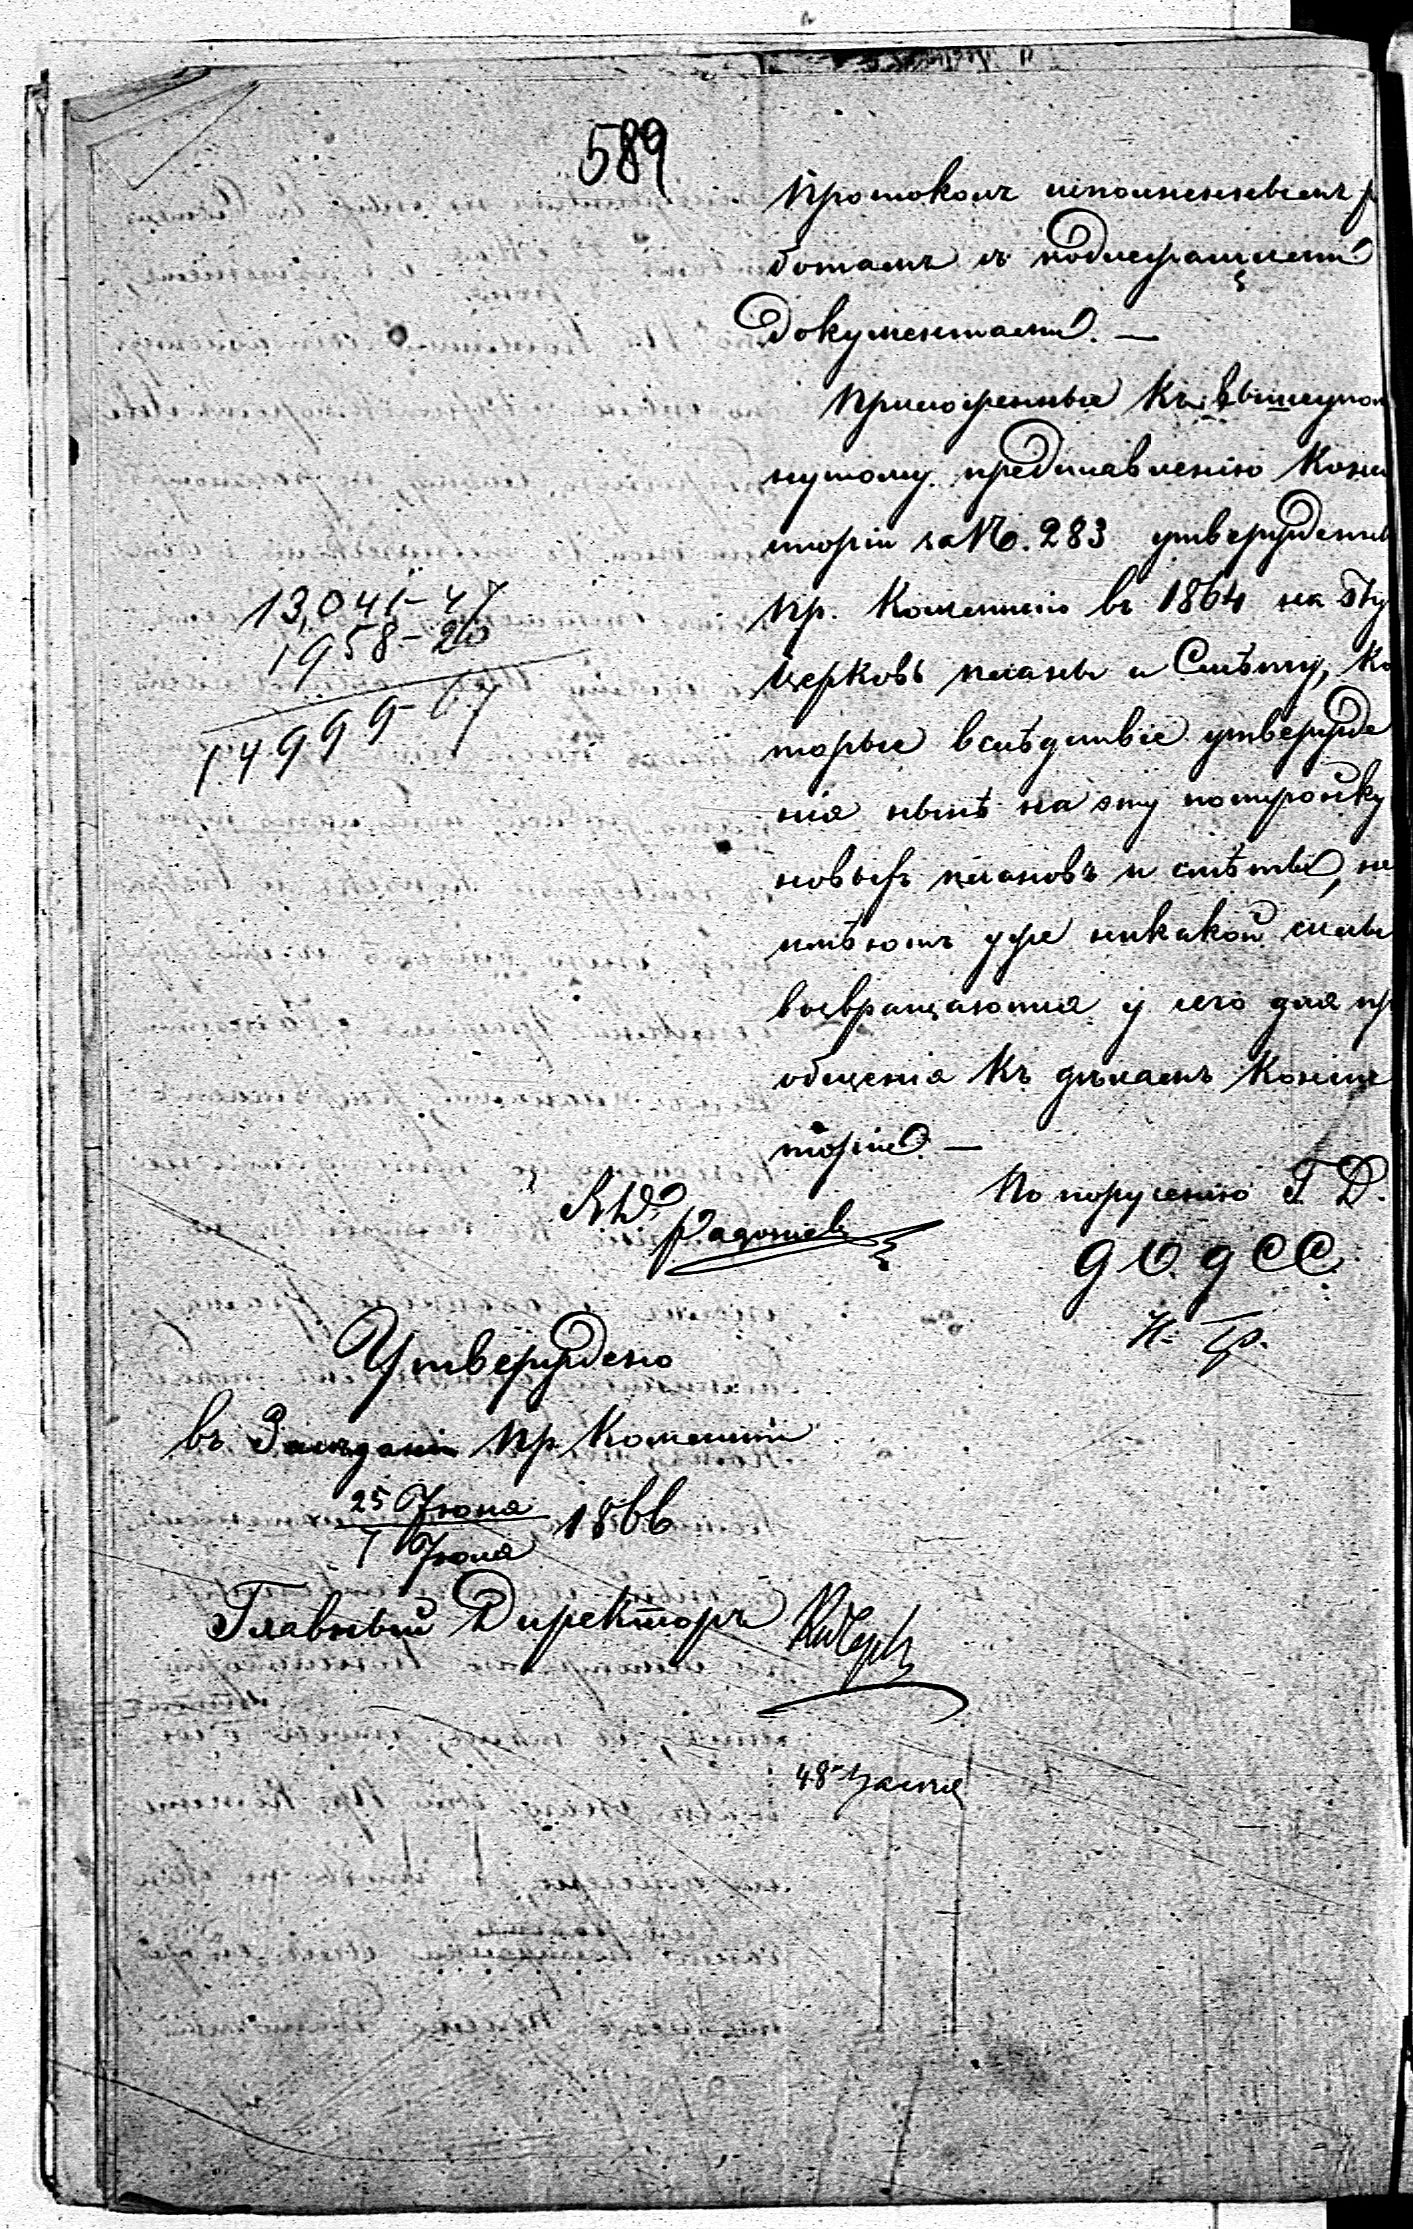 589
Протоколъ исполненнымъ р
ботамъ съ подлежащими
документами. —
Приложенные къ вышеупом
нутому представленію Конси
сторіи за №. 283 утвержденны
Пр. Коммисіею въ 1864 на эту
церковь планы и Смѣту, ко
торые вслѣдствіе утвержде
нія нынѣ на эту постройку
новыхъ плановъ и смѣты, не
имѣютъ уже никакой силы
возвращаются у него для пр
общенія къ дѣламъ Консис
торіи. —
13,041-47
1958-20
14999-67
По порученію Г. Д.
Д. О. Д С С.
Утверждено
въ Засѣданіи Пр. Коммисіи
25 Іюня
7 Іюля 1866
Главный Директоръ